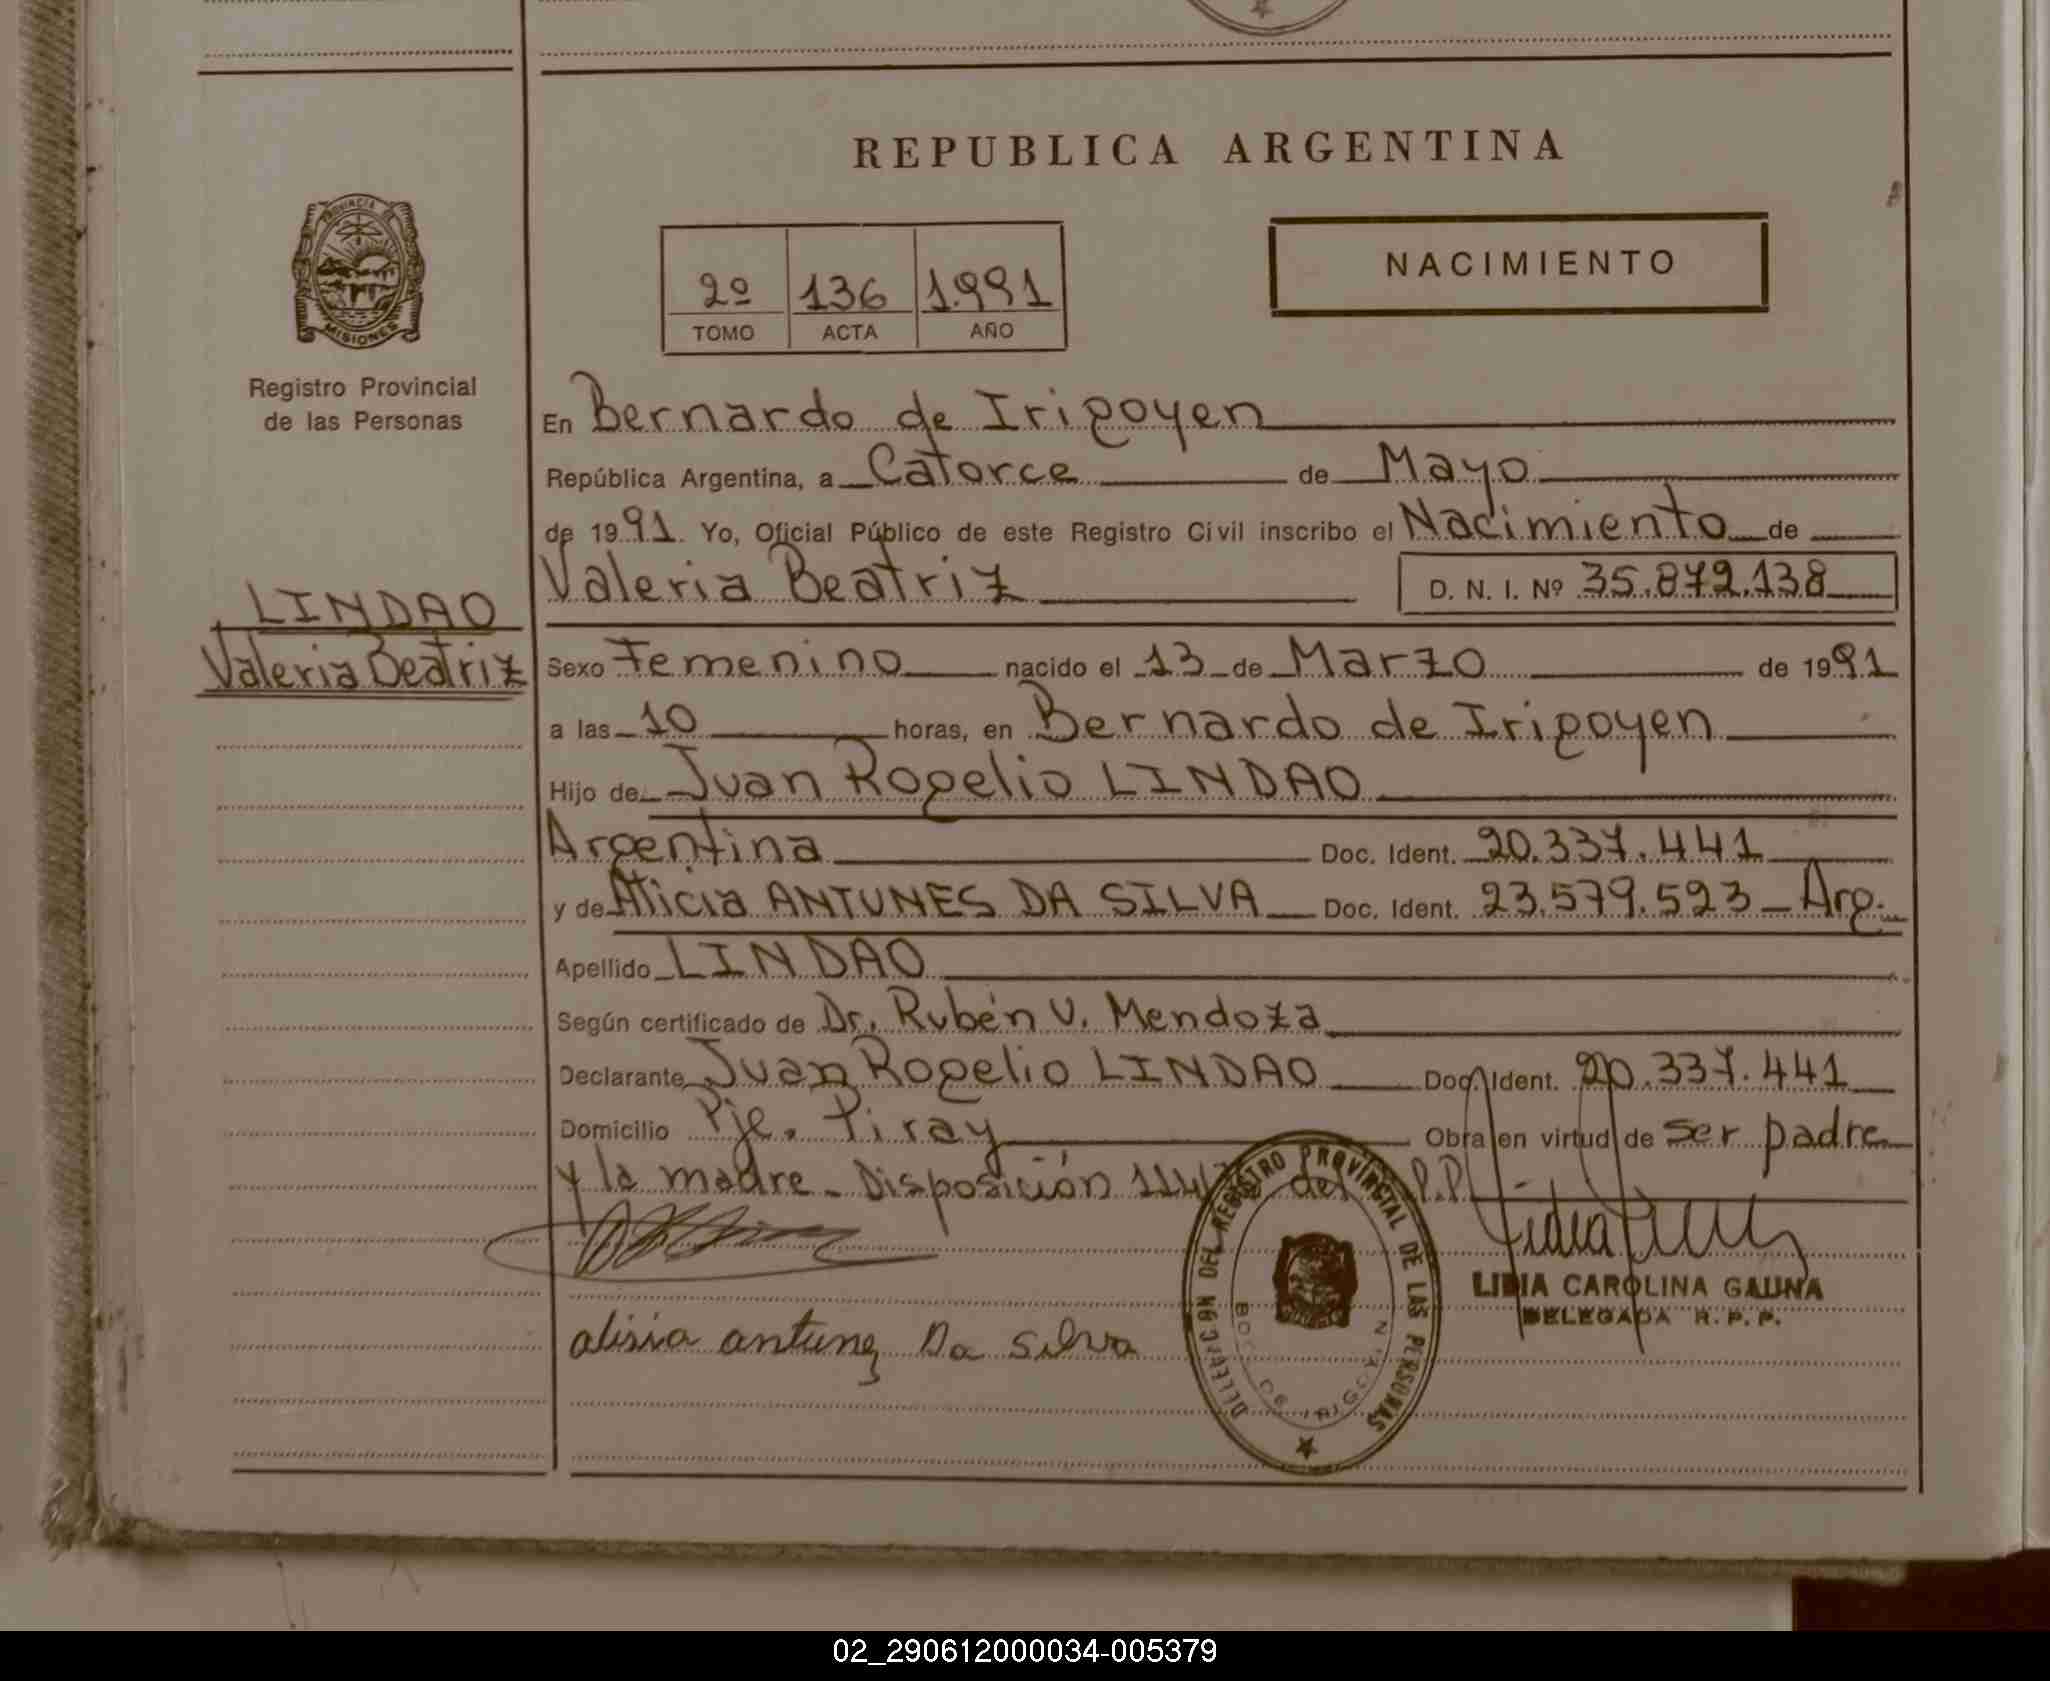 REPUBLICA ARGENTINA
PROVINCIA DE
MISIONES
Registro Provincial
de las Personas
2º 136 1.991
TOMO ACTA AÑO
NACIMIENTO
En Bernardo de Irigoyen
República Argentina, a Catorce de Mayo
de 1991. Yo, Oficial Público de este Registro Civil inscribo el Nacimiento de
Valeria Beatriz D. N. I. Nº 35.872.138
LINDAO
Valeria Beatriz
Sexo Femenino nacido el 13 de Marzo de 1991
a las 10 horas, en Bernardo de Irigoyen
Hijo de Juan Rogelio LINDAO
Argentina Doc. Ident. 20.337.441
y de Alicia ANTUNES DA SILVA Doc. Ident. 23.579.523 - Arg.
Apellido LINDAO
Según certificado de Dr. Rubén V. Mendoza
Declarante Juan Rogelio LINDAO Doc. Ident. 20.337.441
Domicilio Pje. Piray Obra en virtud de ser padre
y la madre - Disposición del P.P.
DELEGACION DEL REGISTRO PROVINCIAL DE LAS PERSONAS
BDO. DE IRIGOYEN
LIDIA CAROLINA GAUNA
DELEGADA R.P.P.
alisia antunez Da Silva
02_290612000034-005379